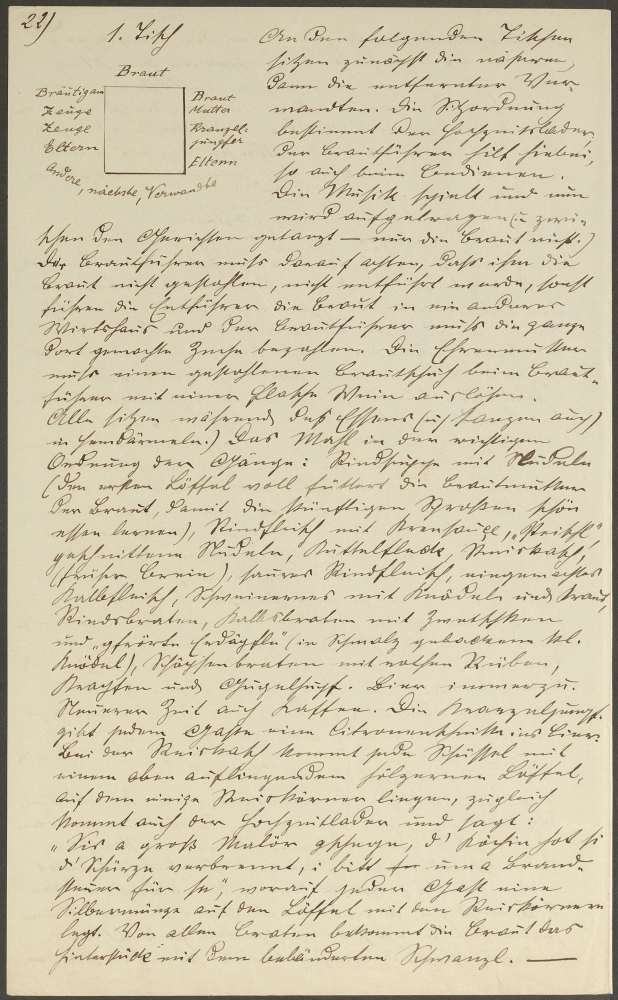 22)
1. Tisch
Braut
Bräutigam
Zeuge
Zeuge
Eltern
Andere, nächste, Verwandte
Braut
Mutter
Kranzel-
jungfer
Eltern
An den folgenden Tischen
sitzen zunächst die nähern,
dann die entfernter Ver-
wandten. Die Sitzordnung
bestimmt der Hochzeitslader,
der Brautführer hilft hiebei,
so auch beim Bedienen.
Die Musik spielt und nun
wird aufgetragen (u. zwi-
schen den Gerichten getanzt — nur die Braut nicht.)
Der Brautführer muß darauf achten, daß ihm die
Braut nicht gestohlen, nicht entführt werde, sonst
führen die Entführer die Braut in ein anderes
Wirtshaus und der Brautführer muß die ganze
dort gemachte Zeche bezahlen. Die Ehrenmutter
muß einen gestohlenen Brautschuh beim Braut-
führer mit einer Flasche Wein auslösen.
Alle sitzen während des Essens (u. tanzen auch)
in Hemdärmeln.) Das Mahl in der richtigen
Ordnung der Gänge: Rindsuppe mit Nudeln
(den ersten Löffel voll füttert die Brautmutter
der Braut, damit die künftigen Sprossen schön
essen lernen), Rindfleisch mit Krensauce,
geschnittene Nudeln, Kuttelflecke, Reiskoch,
(früher Brein), saures Rindfleisch, eingemachtes
Kalbfleisch, Schweinernes mit Knödeln und Kraut,
Rindsbraten, Kalbsbraten mit Zwetschken
und (in Schmalz gebackene kl.
Knödel), Schöpsenbraten mit rothen Rüben,
Krapfen und Gugelhupf. Bier immerzu.
Neuerer Zeit auch Kaffee. Die Kranzeljungf.
gibt jedem Gaste eine Citronenschnitte ins Bier.
Bei der Reiskoch kommt jede Schüssel mit
einem oben aufliegenden hölzernen Löffel,
auf dem einige Reiskörner liegen, zugleich
kommt auch der Hochzeitlader und sagt:
"Sis a groß Malör gschegn, d' Köchin hot si
d' Schürze verbrennt, i bitt um a Brand-
steuer für se", worauf jeder Gast eine
Silbermünze auf den Löffel mit den Reiskörnern
legt. Von allen Braten bekommt die Braut das
Hinterstück mit dem bebänderten Schwanzl. —